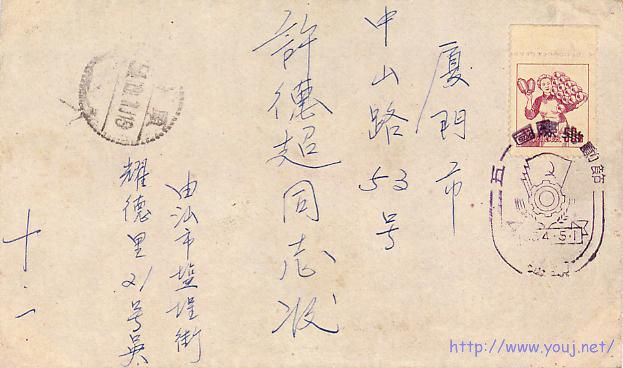 厦門市
中山路53号
許德超同志收
由汕市鹽埕街
耀德里21号吳
十.一
五
動節
4·5·1
厦
http://www.youj.net/